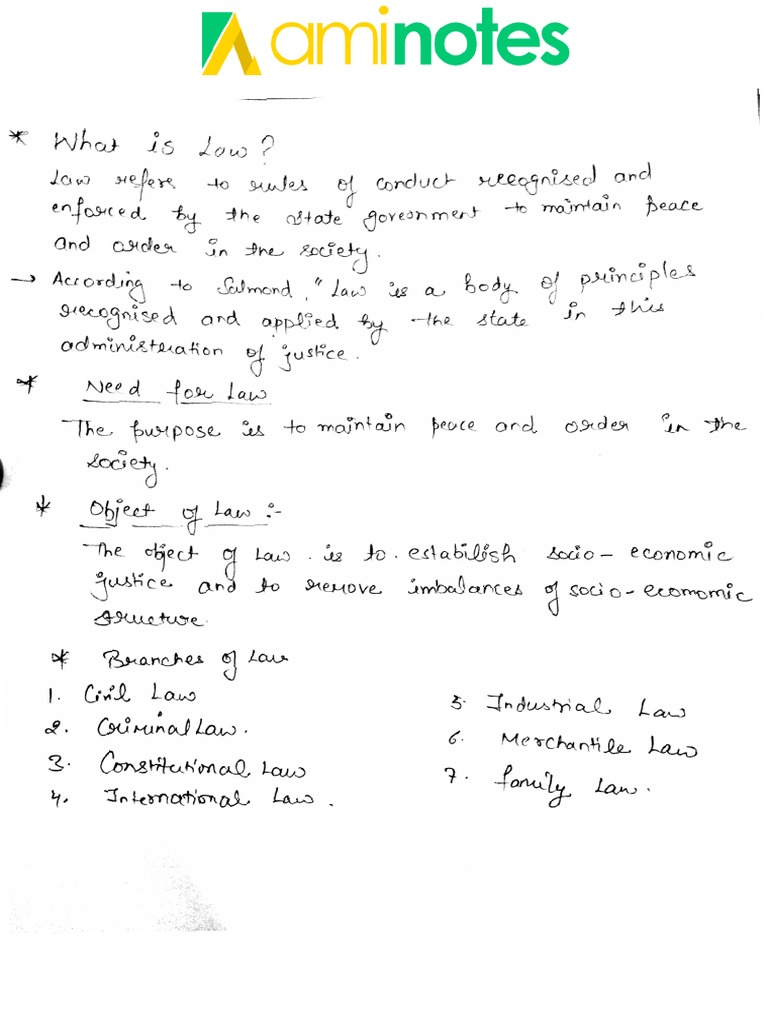 aminotes
* What is Law?
Law refers to rules of conduct recognised and
enforced by the state government to maintain peace
and order in the society.
→ According to Salmond, "Law is a body of principles
recognised and applied by the state in this
administration of justice.
* Need for Law
The purpose is to maintain peace and order in the
society.
* Object of Law :-
The object of Law is to establish socio - economic
justice and to remove imbalances of socio - economic
structure.
* Branches of Law
1. Civil Law
2. Criminal Law.
3. Constitutional Law
4. International Law.
5. Industrial Law
6. Merchantile Law
7. family Law.